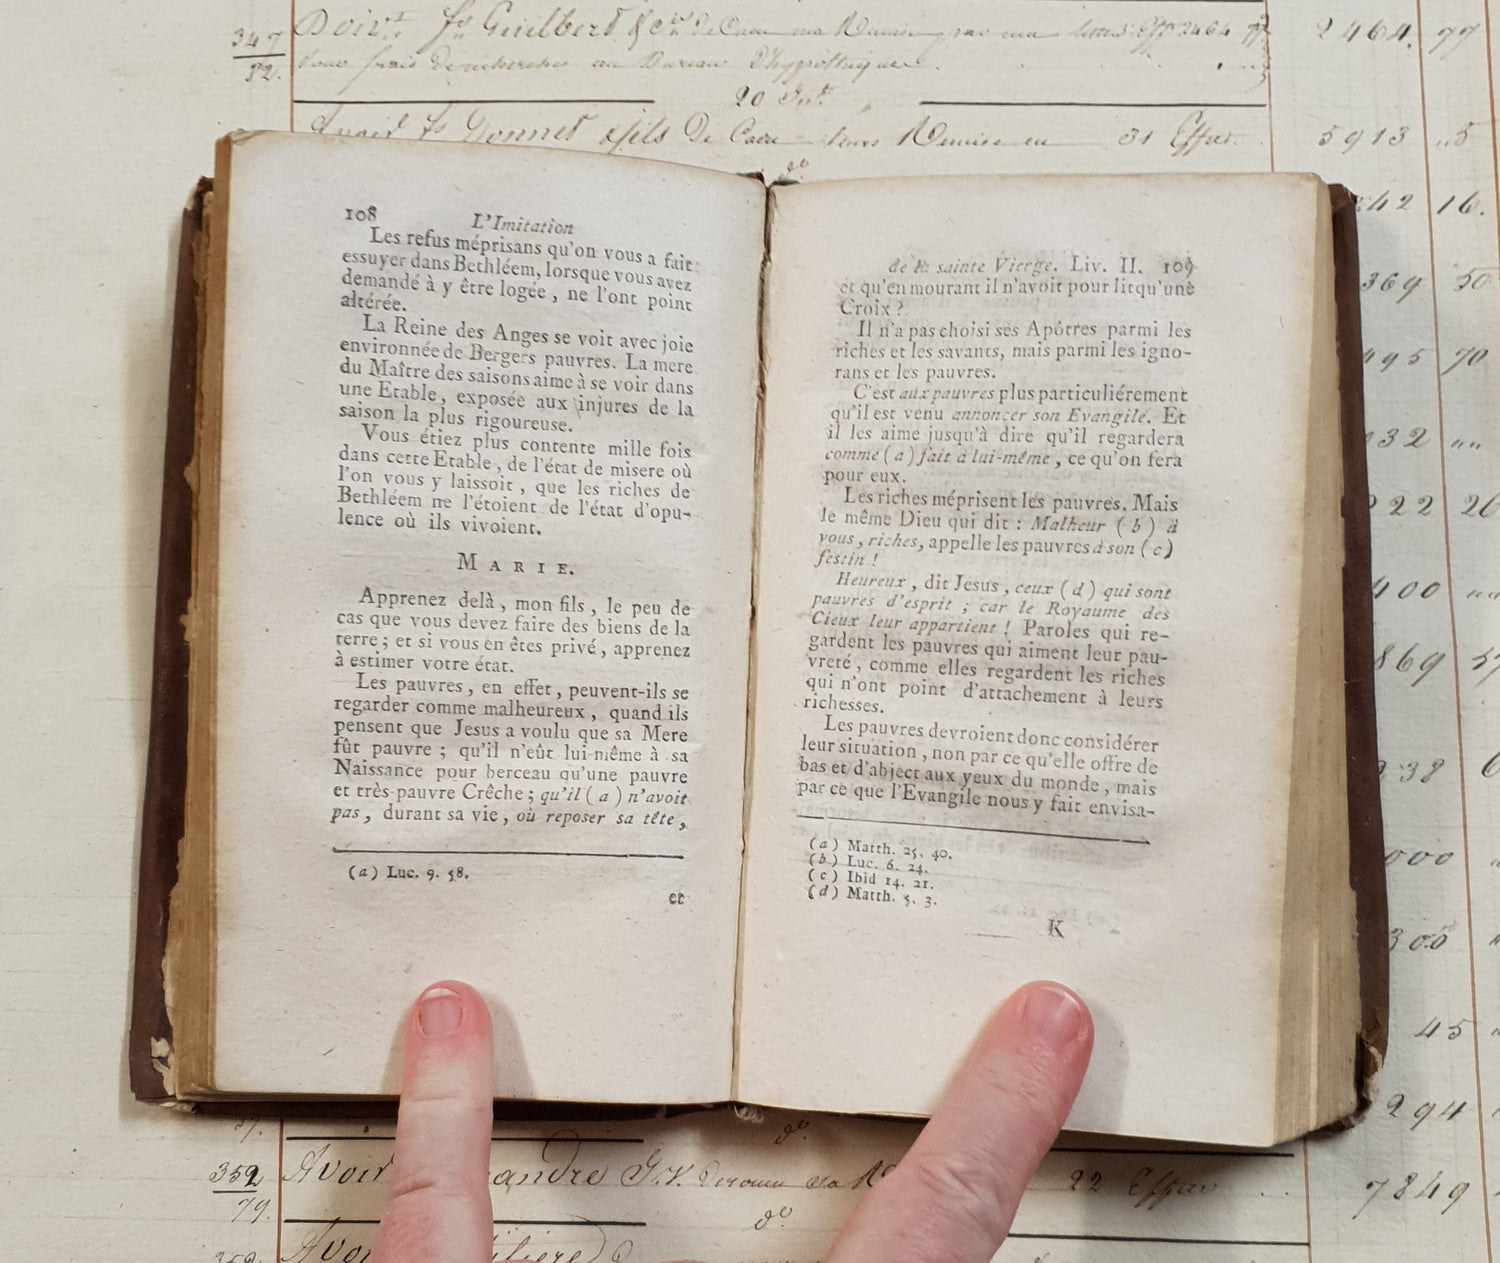 347
52.
Doivt. fs Guilbert & Cie de Caen ma Remise par ma 2464 77
pour frais de recherches au Bureau d'hypothèques
20
Avoir fs Donnet & fils De Caen leurs Remise en 31 Effets. 5913 "5
do
108
L'Imitation
Les refus méprisans qu'on vous a fait
essuyer dans Bethléem, lorsque vous avez
demandé à y être logée, ne l'ont point
altérée.
La Reine des Anges se voit avec joie
environnée de Bergers pauvres. La mere
du Maître des saisons aime à se voir dans
une Etable, exposée aux injures de la
saison la plus rigoureuse.
Vous étiez plus contente mille fois
dans cette Etable, de l'état de misere où
l'on vous y laissoit, que les riches de
Bethléem ne l'étoient de l'état d'opu-
lence où ils vivoient.
MARIE.
Apprenez delà, mon fils, le peu de
cas que vous devez faire des biens de la
terre; et si vous en êtes privé, apprenez
à estimer votre état.
Les pauvres, en effet, peuvent-ils se
regarder comme malheureux, quand ils
pensent que Jesus a voulu que sa Mere
fût pauvre; qu'il n'eût lui-même à sa
Naissance pour berceau qu'une pauvre
et très-pauvre Crêche; qu'il (a) n'avoit
pas, durant sa vie, où reposer sa tête,
(a) Luc. 9. 58.
et
de la sainte Vierge. Liv. II. 109
et qu'en mourant il n'avoit pour lit qu'une
Croix?
Il n'a pas choisi ses Apôtres parmi les
riches et les savants, mais parmi les igno-
rans et les pauvres.
C'est aux pauvres plus particuliérement
qu'il est venu annoncer son Evangile. Et
il les aime jusqu'à dire qu'il regardera
comme (a) fait à lui-même, ce qu'on fera
pour eux.
Les riches méprisent les pauvres. Mais
le même Dieu qui dit : Malheur (b) à
vous, riches, appelle les pauvres à son (c)
festin !
Heureux, dit Jesus, ceux (d) qui sont
pauvres d'esprit ; car le Royaume des
Cieux leur appartient ! Paroles qui re-
gardent les pauvres qui aiment leur pau-
vreté, comme elles regardent les riches
qui n'ont point d'attachement à leurs
richesses.
Les pauvres devroient donc considérer
leur situation, non par ce qu'elle offre de
bas et d'abject aux yeux du monde, mais
par ce que l'Evangile nous y fait envisa-
(a) Matth. 25. 40.
(b) Luc. 6. 24.
(c) Ibid 14. 21.
(d) Matth. 5. 3.
K
42 16.
369 50
495 70
32 ""
222
400 ""
869
38
000
300
45
294
do
352
79.
Avoir 22 Effets 7849
do